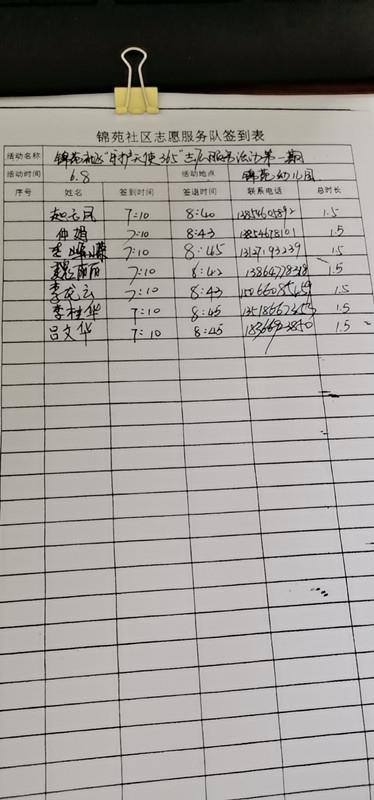 锦苑社区志愿服务队签到表
活动名称 锦苑社区"守护天使365"志愿服务活动第一期
活动时间 6.8 活动地点 锦苑幼儿园
序号 姓名 签到时间 签退时间 联系电话 总时长
7:10 8:40 1.5
仲娟 7:10 8:43 13854678101 1.5
7:10 8:45 13127193239 1.5
魏丽丽 7:10 8:42 1.5
7:10 8:43 1.5
李桂华 7:10 8:45 1.5
吕文华 7:10 8:45 1.5